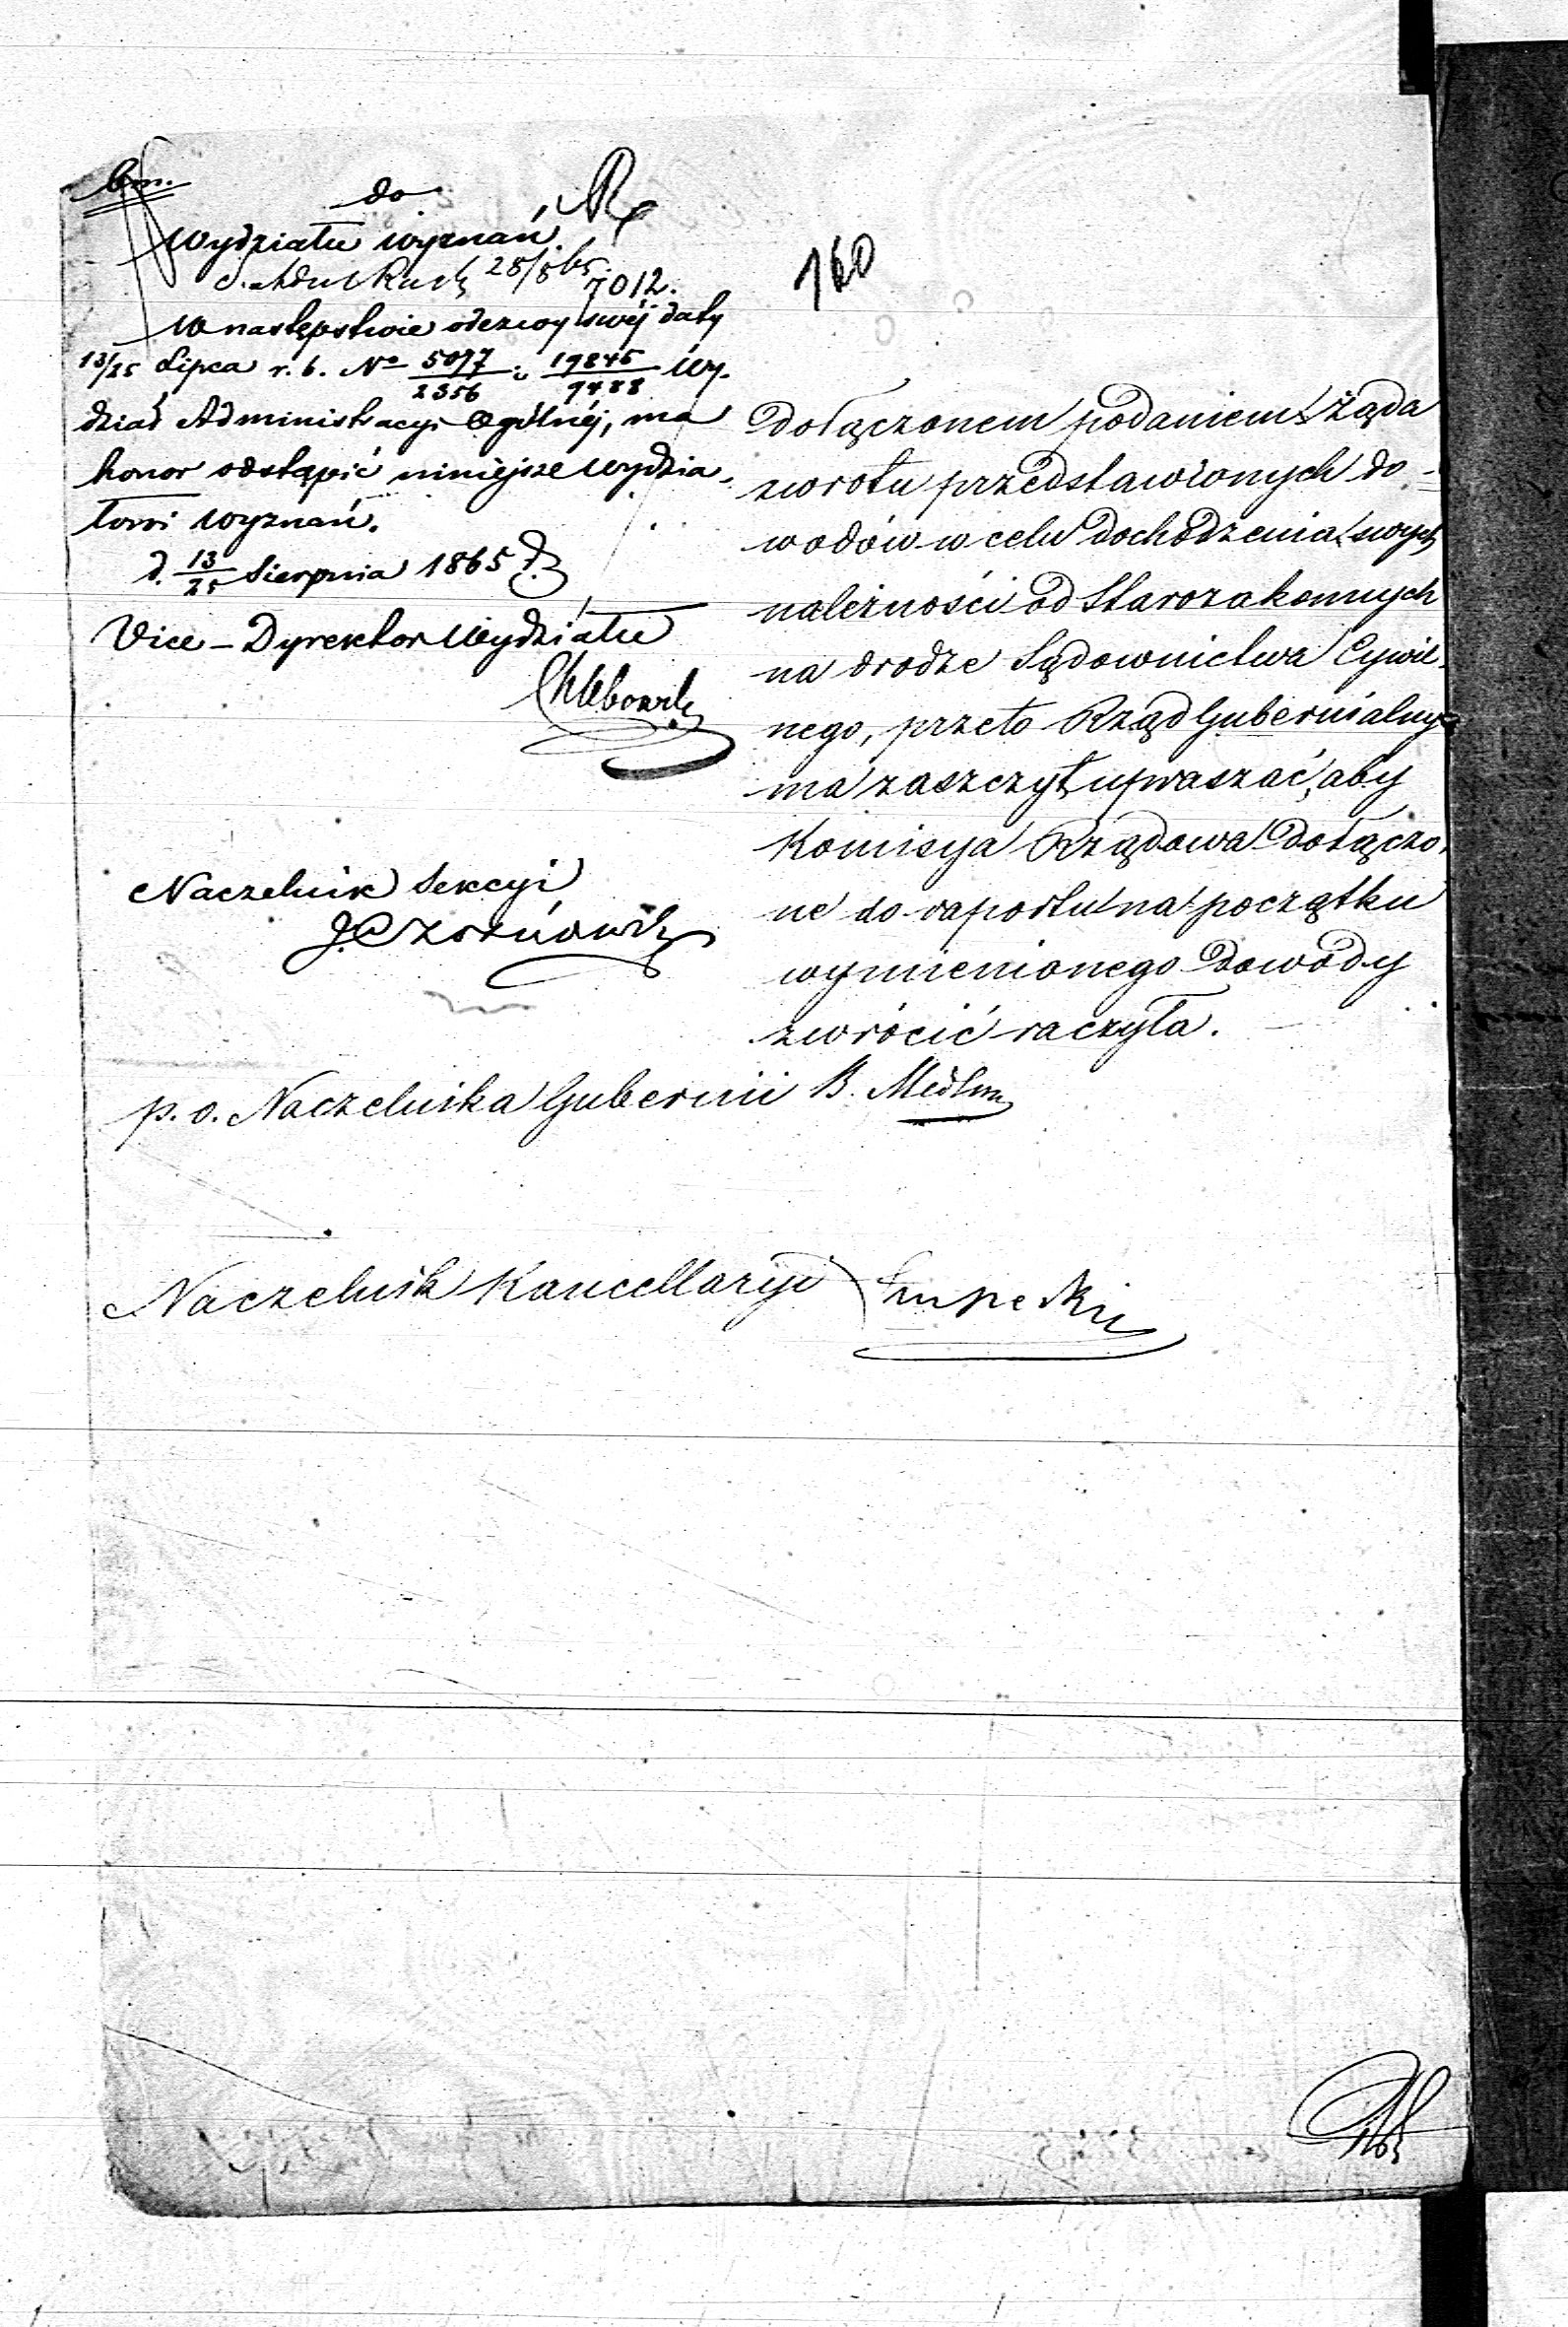 do
Wydziału Wyznań.
28/8 65.
7012.
W następstwie odezwy swéj daty
13/25 Lipca r. b. No 5077/2356 i 19845/9488 Wy-
dział Administracyi Ogólnéj, ma
honor odstąpić niniejsze Wydzia-
łowi Wyznań.
d. 13/25 Sierpnia 1865
Vice-Dyrektor Wydziału
Naczelnik Sekcyi
160
dołączonem podaniem żąda
zwrotu przedstawionych do-
wodów w celu dochodzenia swych
należności od Starozakonnych
na drodze Sądownictwa Cywil-
nego, przeto Rząd Gubernialny
ma zaszczyt upraszać, aby
Komisya Rządowa dołączo-
ne do raportu na początku
wymienionego dowody
zwrócić raczyła.
p. o. Naczelnika Gubernii B.
Naczelnik Kancellaryi